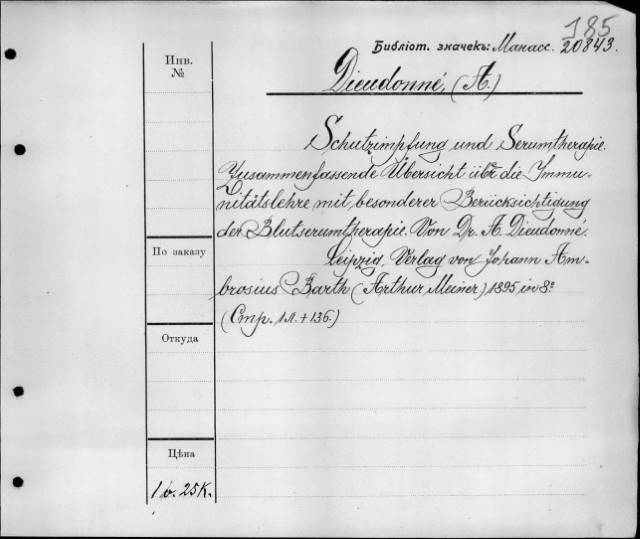 185
Библіот. значекъ: Манасс. 20843.
Инв.
№
Dieudonné, (A.)
Schutzimpfung und Serumtherapie.
Zusammenfassende Übersicht über die Immu-
nitätslehre mit besonderer Berücksichtigung
der Blutserumtherapie. Von Dr. A. Dieudonné.
Leipzig. Verlag von Johann Am-
brosius Barth (Arthur Meiner) 1895 in 8º
(Стр. 1л. + 136.)
По заказу
Откуда
Цѣна
1 р. 25 к.